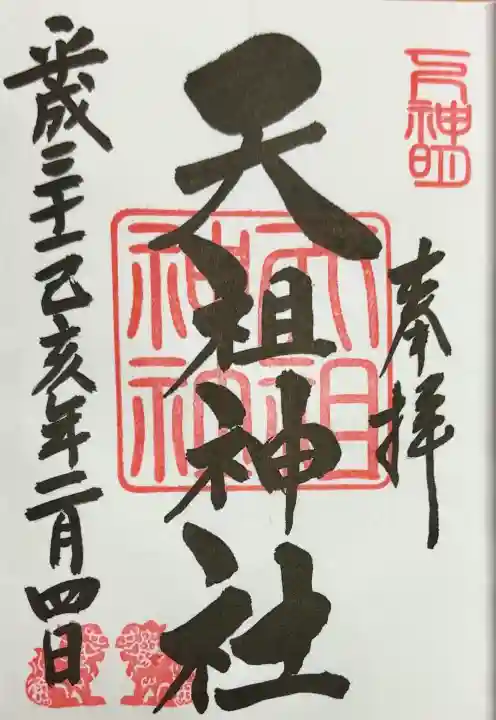 奉拝
天祖神社
天祖神社
平成三十一己亥年二月四日